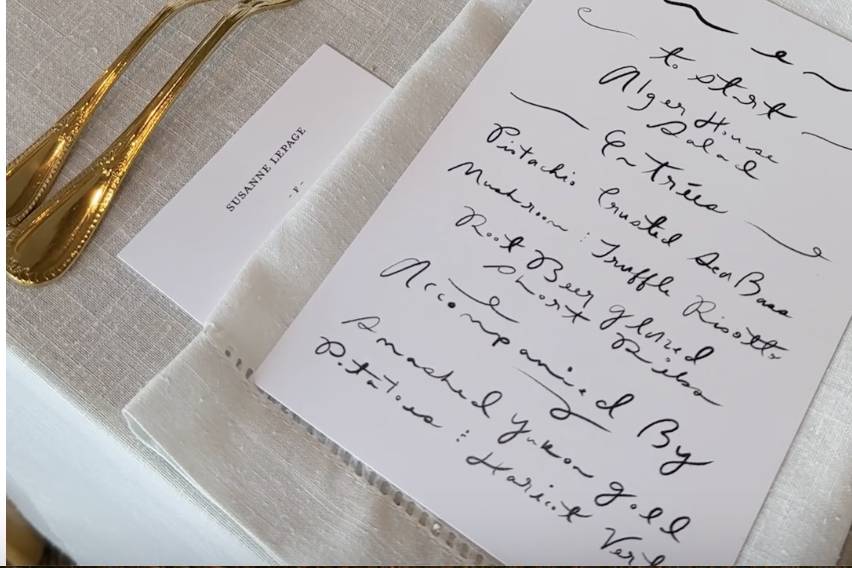 SUSANNE LEPAGE
- F -
to start
Alger House
Salad
Entrées
Pistachio Crusted Sea Bass
Mushroom : Truffle Risotto
Root Beer glazed
Short Ribs
Accompanied By
Smashed Yukon gold
Potatoes : Haricot Vert